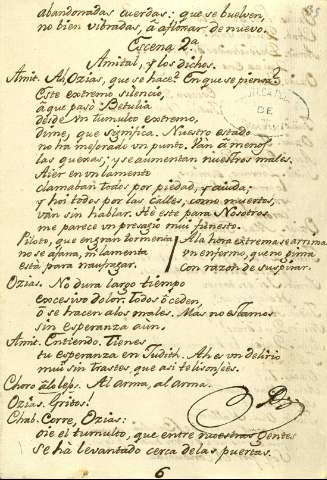 abandonadas cuerdas: que se buelven,
no bien vibradas, à afloxar de nuevo.
Escena 2ª
Amital, y los dichos.
Amit. Ah Ozias, que se hace? En que se piensa?
Este extremo silencio,
à que pasò Betulia
desde un tumulto extremo,
dime, que significa. Nuestro estado
no ha mejorado un punto. Van à menos
las quenas; y se aumentan nuestros males.
Aier en un lamento
clamaban todos por piedad, y aiuda;
y hoi todos por las calles, como muertos,
van sin hablar. Ah! este para Nosotros
me parece un presagio mui funesto.
Piloto, que en gran tormenta
no se afana, ni lamenta
està para naufragar.
A la hora extrema se arrima
un enfermo, que no gima
con razon de suspirar.
Ozias. No dura largo tiempo
excesivo dolor. Todos ò ceden,
ò se hacen a los males. Mas no estamos
sin esperanza aun.
Amit. Entiendo. Tienes
tu esperanza en Judith. Ah es un delirio
mui sin trastes, que asi te lisongees.
Choro à lo lejs. Al arma, al arma.
Ozias. Gritos!
Chab. Corre, Ozias:
oie el tumulto, que entre nuestras gentes
se ha levantado cerca de las puertas.
6